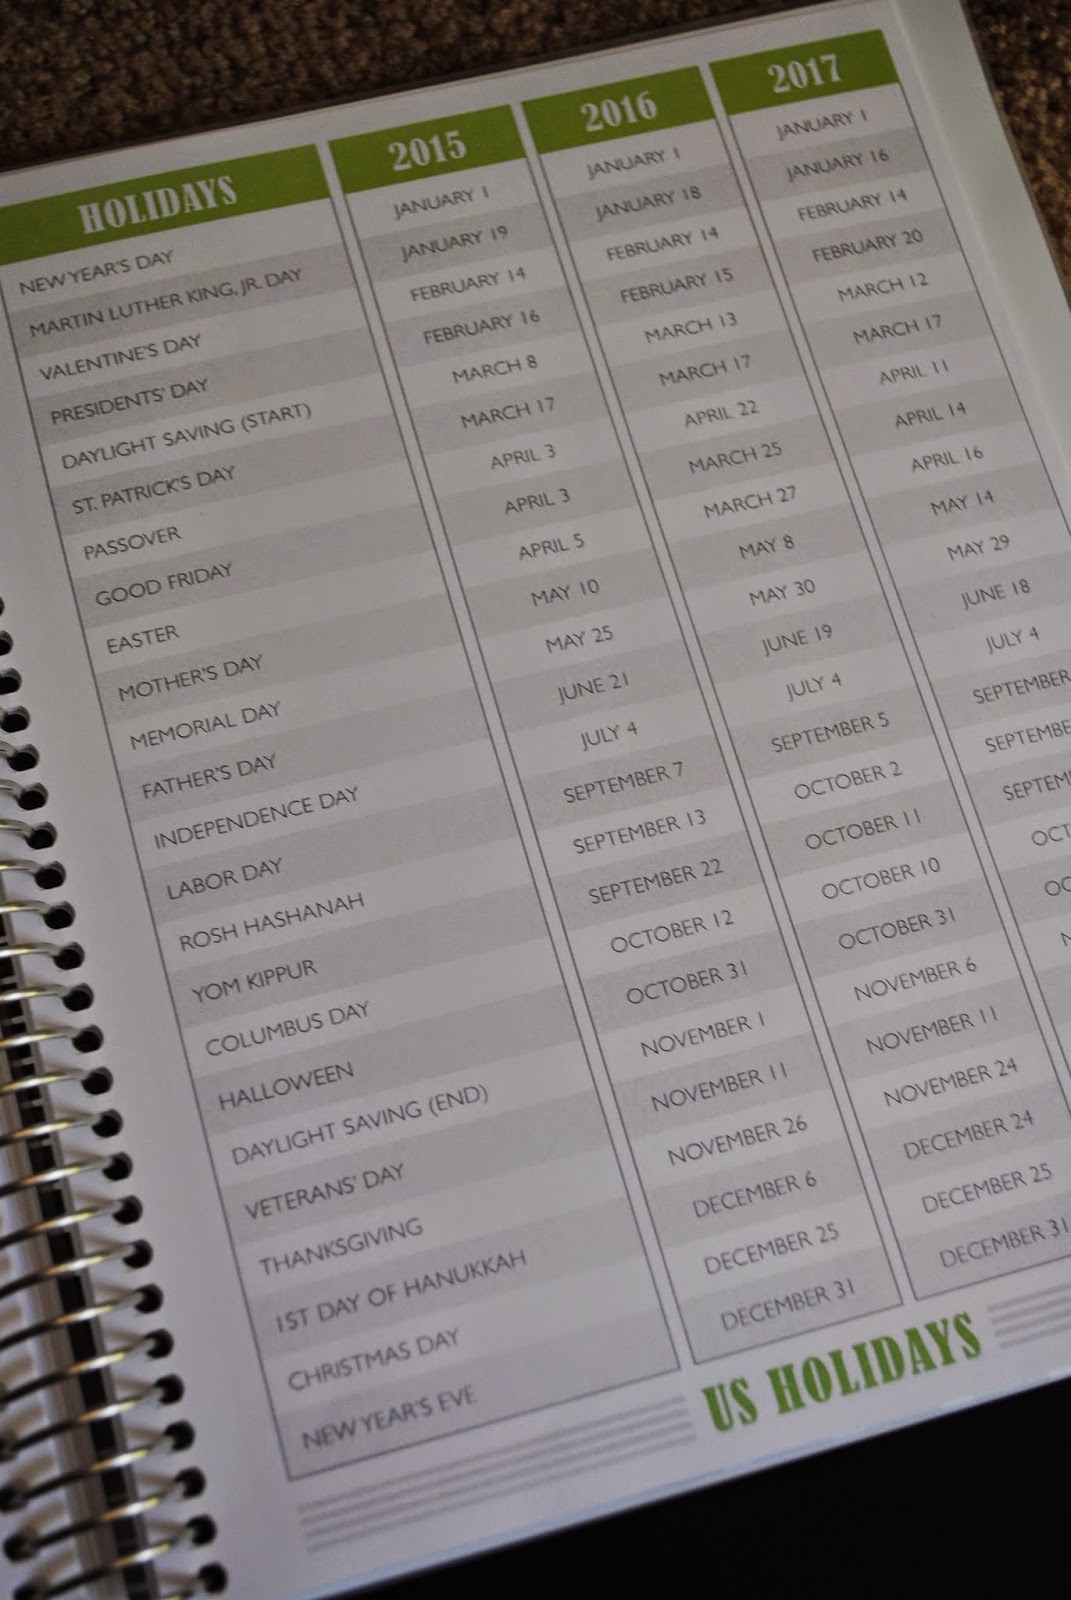 HOLIDAYS 2015 2016 2017
NEW YEAR'S DAY JANUARY 1 JANUARY 1 JANUARY 1
MARTIN LUTHER KING, JR. DAY JANUARY 19 JANUARY 18 JANUARY 16
VALENTINE'S DAY FEBRUARY 14 FEBRUARY 14 FEBRUARY 14
PRESIDENTS' DAY FEBRUARY 16 FEBRUARY 15 FEBRUARY 20
DAYLIGHT SAVING (START) MARCH 8 MARCH 13 MARCH 12
ST. PATRICK'S DAY MARCH 17 MARCH 17 MARCH 17
PASSOVER APRIL 3 APRIL 22 APRIL 11
GOOD FRIDAY APRIL 3 MARCH 25 APRIL 14
EASTER APRIL 5 MARCH 27 APRIL 16
MOTHER'S DAY MAY 10 MAY 8 MAY 14
MEMORIAL DAY MAY 25 MAY 30 MAY 29
FATHER'S DAY JUNE 21 JUNE 19 JUNE 18
INDEPENDENCE DAY JULY 4 JULY 4 JULY 4
LABOR DAY SEPTEMBER 7 SEPTEMBER 5 SEPTEMBER
ROSH HASHANAH SEPTEMBER 13 OCTOBER 2 SEPTEMBE
YOM KIPPUR SEPTEMBER 22 OCTOBER 11 SEPTEM
COLUMBUS DAY OCTOBER 12 OCTOBER 10 OCT
HALLOWEEN OCTOBER 31 OCTOBER 31 OC
DAYLIGHT SAVING (END) NOVEMBER 1 NOVEMBER 6
VETERANS' DAY NOVEMBER 11 NOVEMBER 11
THANKSGIVING NOVEMBER 26 NOVEMBER 24
1ST DAY OF HANUKKAH DECEMBER 6 DECEMBER 24
CHRISTMAS DAY DECEMBER 25 DECEMBER 25
NEW YEAR'S EVE DECEMBER 31 DECEMBER 31
US HOLIDAYS